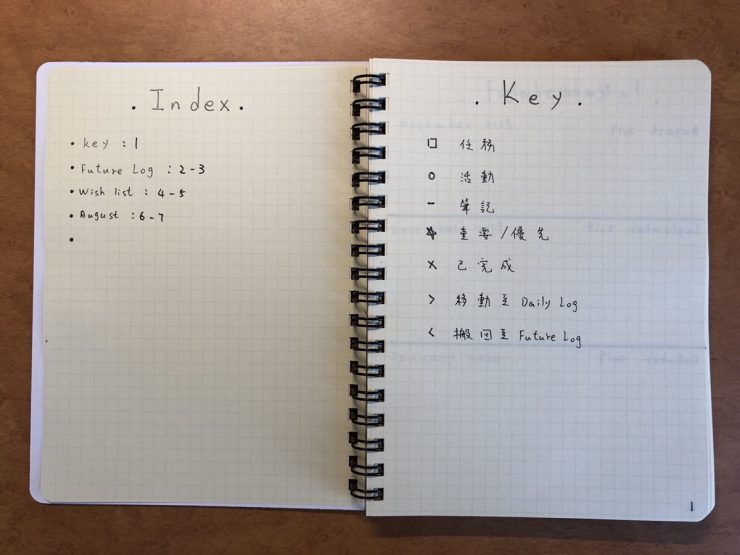 . Index .
• key : 1
• Future Log : 2-3
• Wish list : 4-5
• August : 6-7
•
. Key .
□ 任務
○ 活動
- 筆記
☆ 重要/優先
× 已完成
> 移動至 Daily Log
< 搬回至 Future Log
1